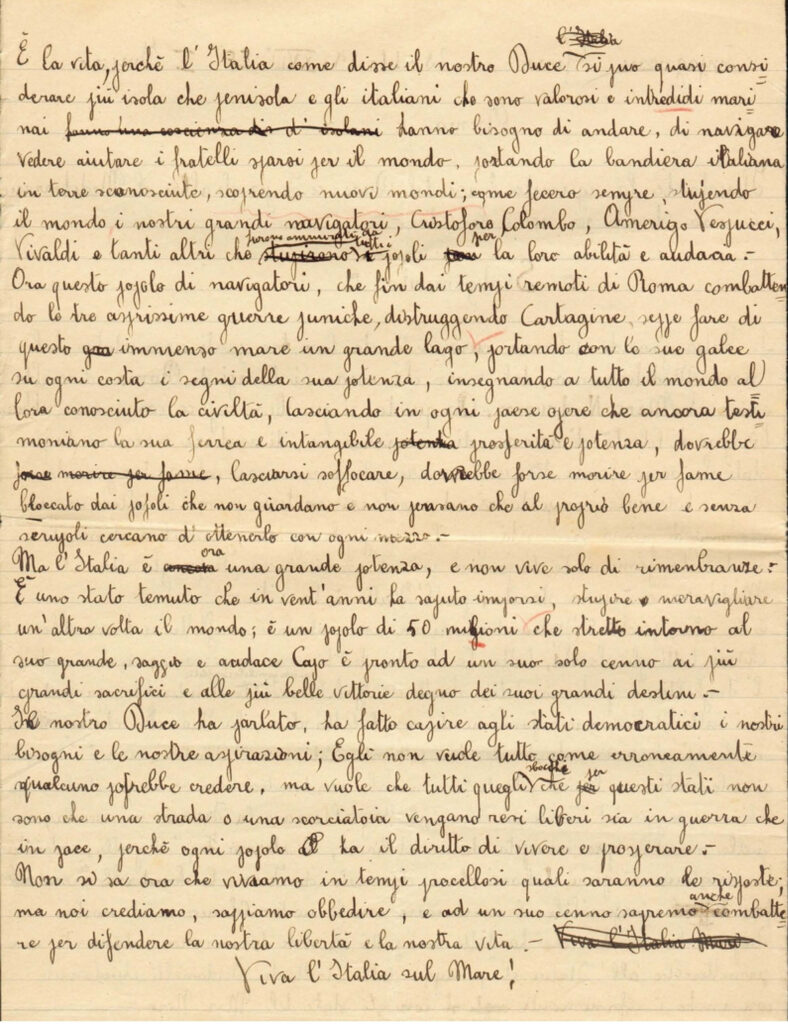 l'Italia
È la vita, perchè l'Italia come disse il nostro Duce si può quasi consi=
derare più isola che penisola e gli italiani che sono valorosi e intredidi mari
nai hanno una coscienza di d'isolani hanno bisogno di andare, di navigare
vedere aiutare i fratelli sparsi per il mondo, portando la bandiera italiana
in terre sconosciute, scoprendo nuovi mondi; come fecero sempre, stupendo
il mondo i nostri grandi navigatori, Cristoforo Colombo, Amerigo Vespucci,
furono ammirati da tutti i per
Vivaldi e tanti altri che stupirono i popoli la loro abilità e audacia.-
Ora questo popolo di navigatori, che fin dai tempi remoti di Roma combatten
do le tre asprissime guerre puniche, distruggendo Cartagine, seppe fare di
questo immenso mare un grande lago, portando con le sue galee
su ogni costa i segni della sua potenza, insegnando a tutto il mondo al=
lora conosciuto la civiltà, lasciando in ogni paese opere che ancora testi=
moniano la sua ferrea e intangibile potenza prosperità e potenza, dovrebbe
forse morire per fame, lasciarsi soffocare, dovrebbe forse morire per fame
bloccato dai popoli che non guardano e non pensano che al proprio bene e senza
scrupoli cercano d'ottenerlo con ogni mezzo.-
ora
Ma l'Italia è ancora una grande potenza, e non vive solo di rimembranze.-
È uno stato temuto che in vent'anni ha saputo imporsi, stupire e meravigliare
un'altra volta il mondo; è un popolo di 50 milioni che stretto intorno al
suo grande, saggio e audace Capo è pronto ad un suo solo cenno ai più
grandi sacrifici e alle più belle vittorie degno dei suoi grandi destini.-
Il nostro Duce ha parlato, ha fatto capire agli stati democratici i nostri
bisogni e le nostre aspirazioni; Egli non vuole tutto come erroneamente
sbocchi per
qualcuno potrebbe credere, ma vuole che tutti quegli che per questi stati non
sono che una strada o una scorciatoia vengano resi liberi sia in guerra che
in pace, perchè ogni popolo ha il diritto di vivere e prosperare.-
Non si sa ora che viviamo in tempi procellosi quali saranno le risposte;
anche
ma noi crediamo, sappiamo obbedire, e ad un suo cenno sapremo combatte=
re per difendere la nostra libertà e la nostra vita.- Viva l'Italia Mare
Viva l'Italia sul Mare!